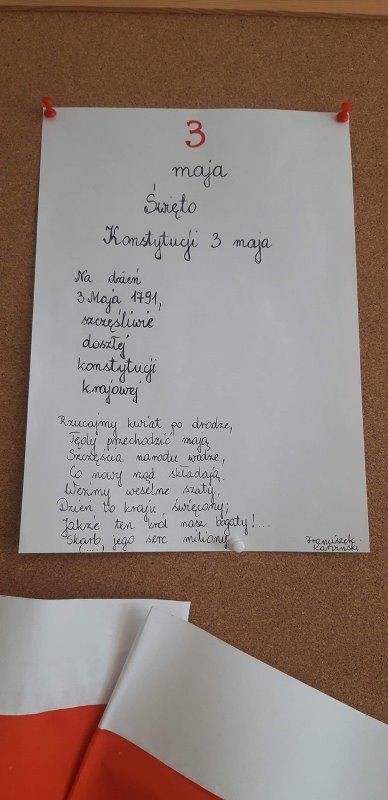 3
maja
Święto
Konstytucji 3 maja
Na dzień
3 Maja 1791,
szczęśliwie
doszłej
konstytucji
krajowej
Rzucajmy kwiat po drodze,
Tędy przechodzić mają
Szczęścia narodu wodze,
Co nowy rząd składają.
Weźmy weselne szaty,
Dzień to kraju święcony;
Jakże ten król nasz bogaty!...
Skarb jego serc miliony
(.....)
Franciszek
Karpiński